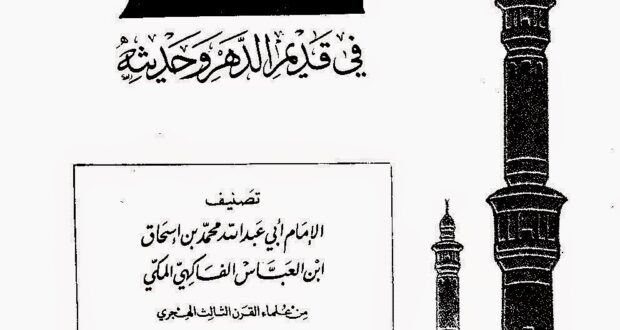 في قديم الدهر وحديثه
تصنيف
الإمام أبي عبد الله محمد بن إسحاق
ابن العباس الفاكهي المكي
من علماء القرن الثالث الهجري